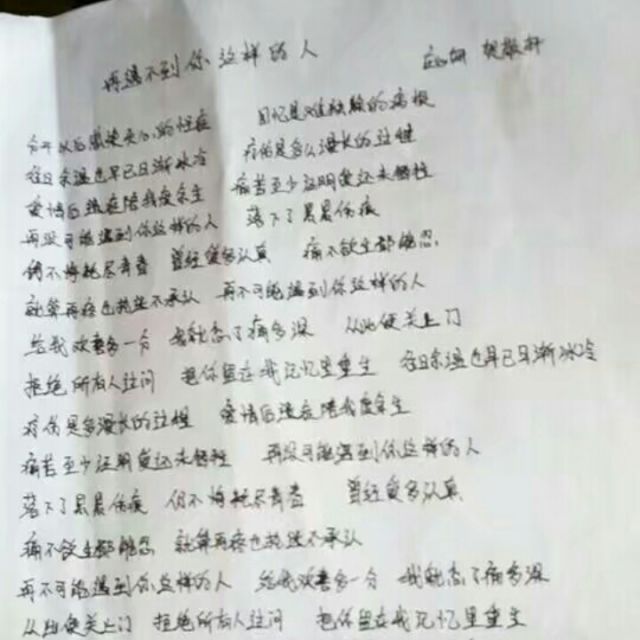 再遇不到你这样的人
分开以后 心的 回忆是难 的高
往日余温也早已日渐冰冷 疗伤是多么漫长的过程
爱情后遗症陪我度余生 痛苦至少证明爱还未牺牲
再没可能遇到你这样的人 落下了累累伤痕
倘不惜耗尽青春 曾经爱多认真 痛不欲生都能忍
就算再疼也执迷不承认 再不可能遇到你这样的人
给我欢喜多一分 我就恋了病多深 从此便关上门
拒绝所有人过问 把你留在我记忆里重生 往日余温也早已日渐冰冷
疗伤是多漫长的过程 爱情后遗症陪我度余生
痛苦至少证明爱还未牺牲 再没可能遇到你这样的人
落下了累累伤痕 但不惜耗尽青春 曾经爱多认真
痛不欲生都能忍 就算再疼也执迷不承认
再不可能遇到你这样的人 给我欢喜多一分 我就恋了病多深
从此便关上门 拒绝所有人过问 把你留在我记忆里重生